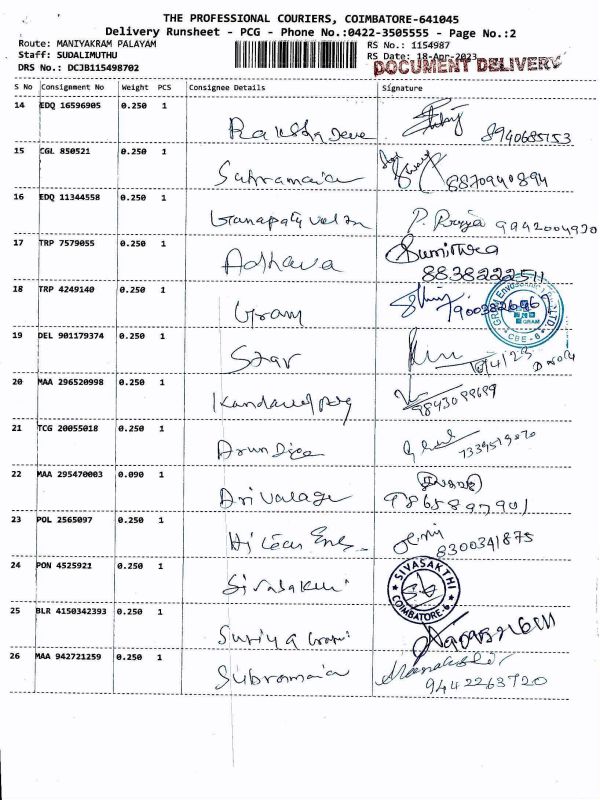 THE PROFESSIONAL COURIERS, COIMBATORE-641045
Delivery Runsheet - PCG - Phone No.:0422-3505555 - Page No.:2
Route: MANIYAKRAM PALAYAM RS No.: 1154987
Staff: SUDALIMUTHU RS Date: 18-Apr-2023
DRS No.: DCJB115498702 DOCUMENT DELIVERY
S No Consignment No Weight PCS Consignee Details Signature
14 EDQ 16596905 0.250 1
8940685153
15 CGL 850521 0.250 1
Subramaia 8870940894
16 EDQ 11344558 0.250 1
Ganapaty P. Priya 9942004930
17 TRP 7579055 0.250 1
Adhava Sumithra
8838222511
18 TRP 4249140 0.250 1
Gram
GRAM
CBE-6
19 DEL 901179374 0.250 1
Star
20 MAA 296520998 0.250 1
9843099699
21 TCG 20055018 0.250 1
22 MAA 295470003 0.090 1
9865897901
23 POL 2565097 0.250 1
8300341875
24 PON 4525921 0.250 1
SIVASAKTHI
COIMBATORE-6
25 BLR 4150342393 0.250 1
Suriya
26 MAA 942721259 0.250 1
Subramaia
9442263720